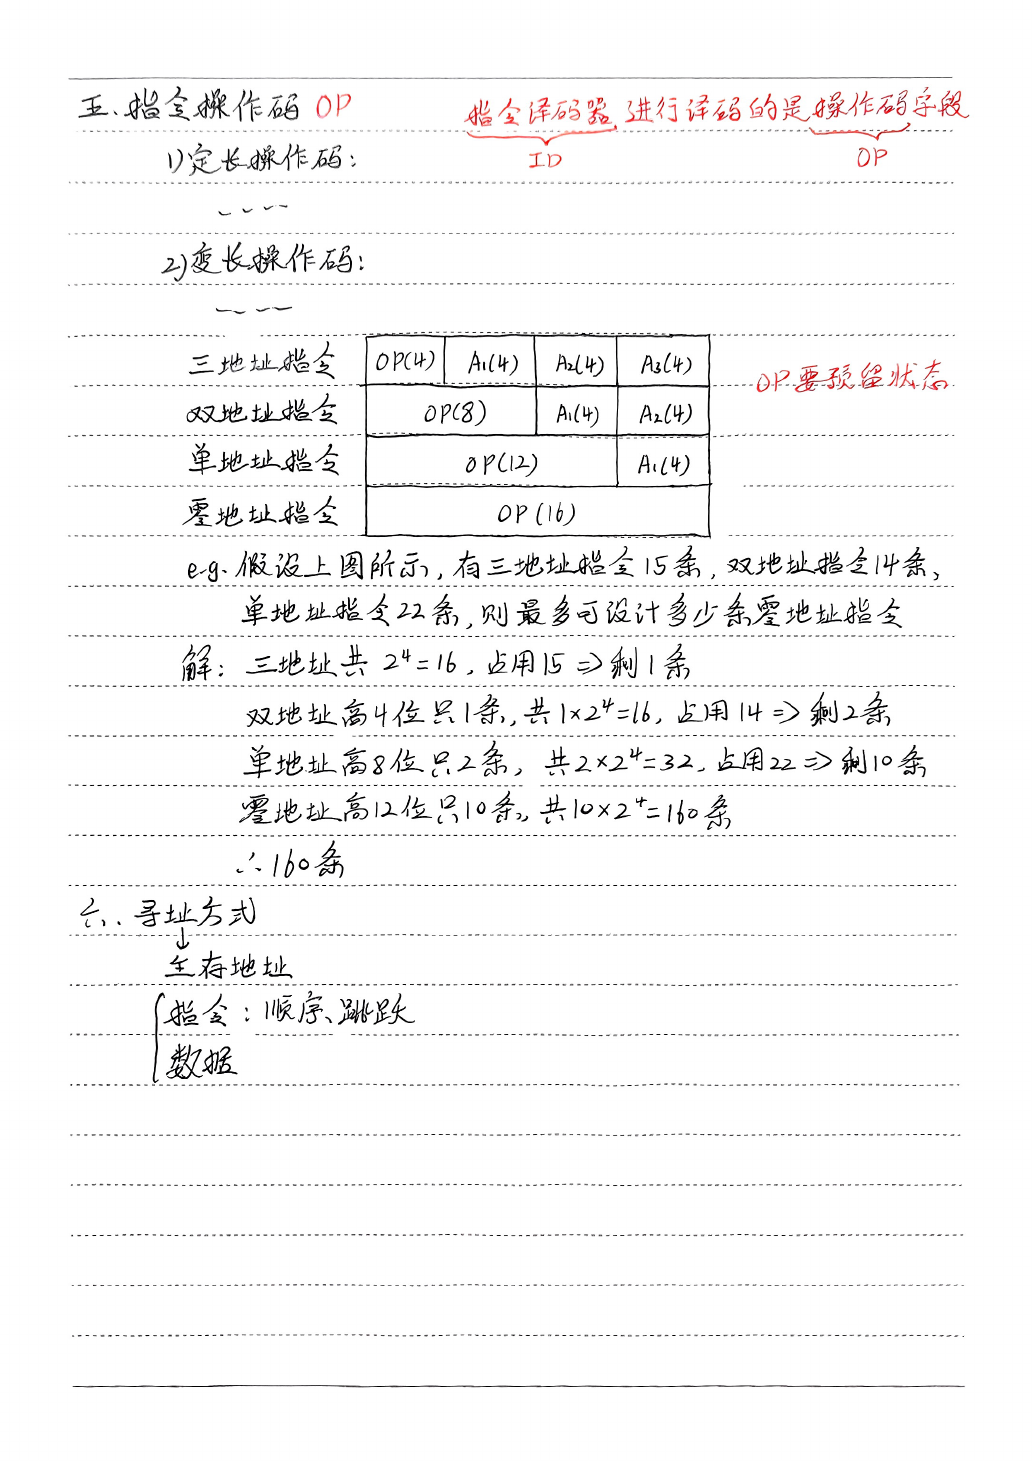 五、指令操作码 OP 指令译码器 进行译码的是操作码字段
1)定长操作码: ID OP
2)变长操作码:
三地址指令 OP(4) A₁(4) A₂(4) A₃(4) OP要预留状态
双地址指令 OP(8) A₁(4) A₂(4)
单地址指令 OP(12) A₁(4)
零地址指令 OP(16)
e.g. 假设上图所示, 有三地址指令15条, 双地址指令14条、
单地址指令22条, 则最多可设计多少条零地址指令
解: 三地址共 2⁴=16, 占用15 => 剩1条
双地址高4位只1条, 共1×2⁴=16, 占用14 => 剩2条
单地址高8位只2条, 共2×2⁴=32, 占用22 => 剩10条
零地址高12位只10条, 共10×2⁴=160条
∴160条
六、寻址方式
↓
主存地址
指令: 顺序、跳跃
数据